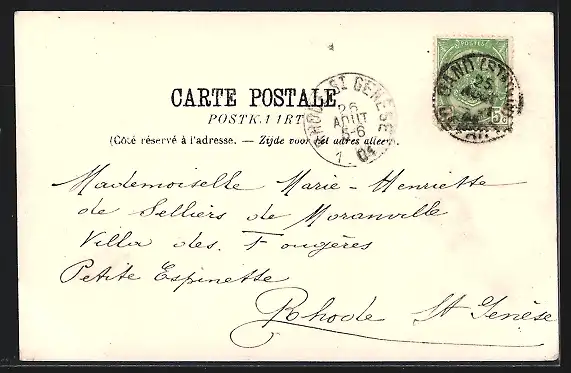 CARTE POSTALE
POSTKAART
(Côté réservé à l'adresse. — Zijde voor het adres alleen.)
RHODE-ST-GENESE
26
AOUT
5-6
1 04
GAND (ST
25
5
Mademoiselle Marie-Henriette
de Selliers de Moranville
Villa des Fougères
Petite Espinette
Rhode St Genèse